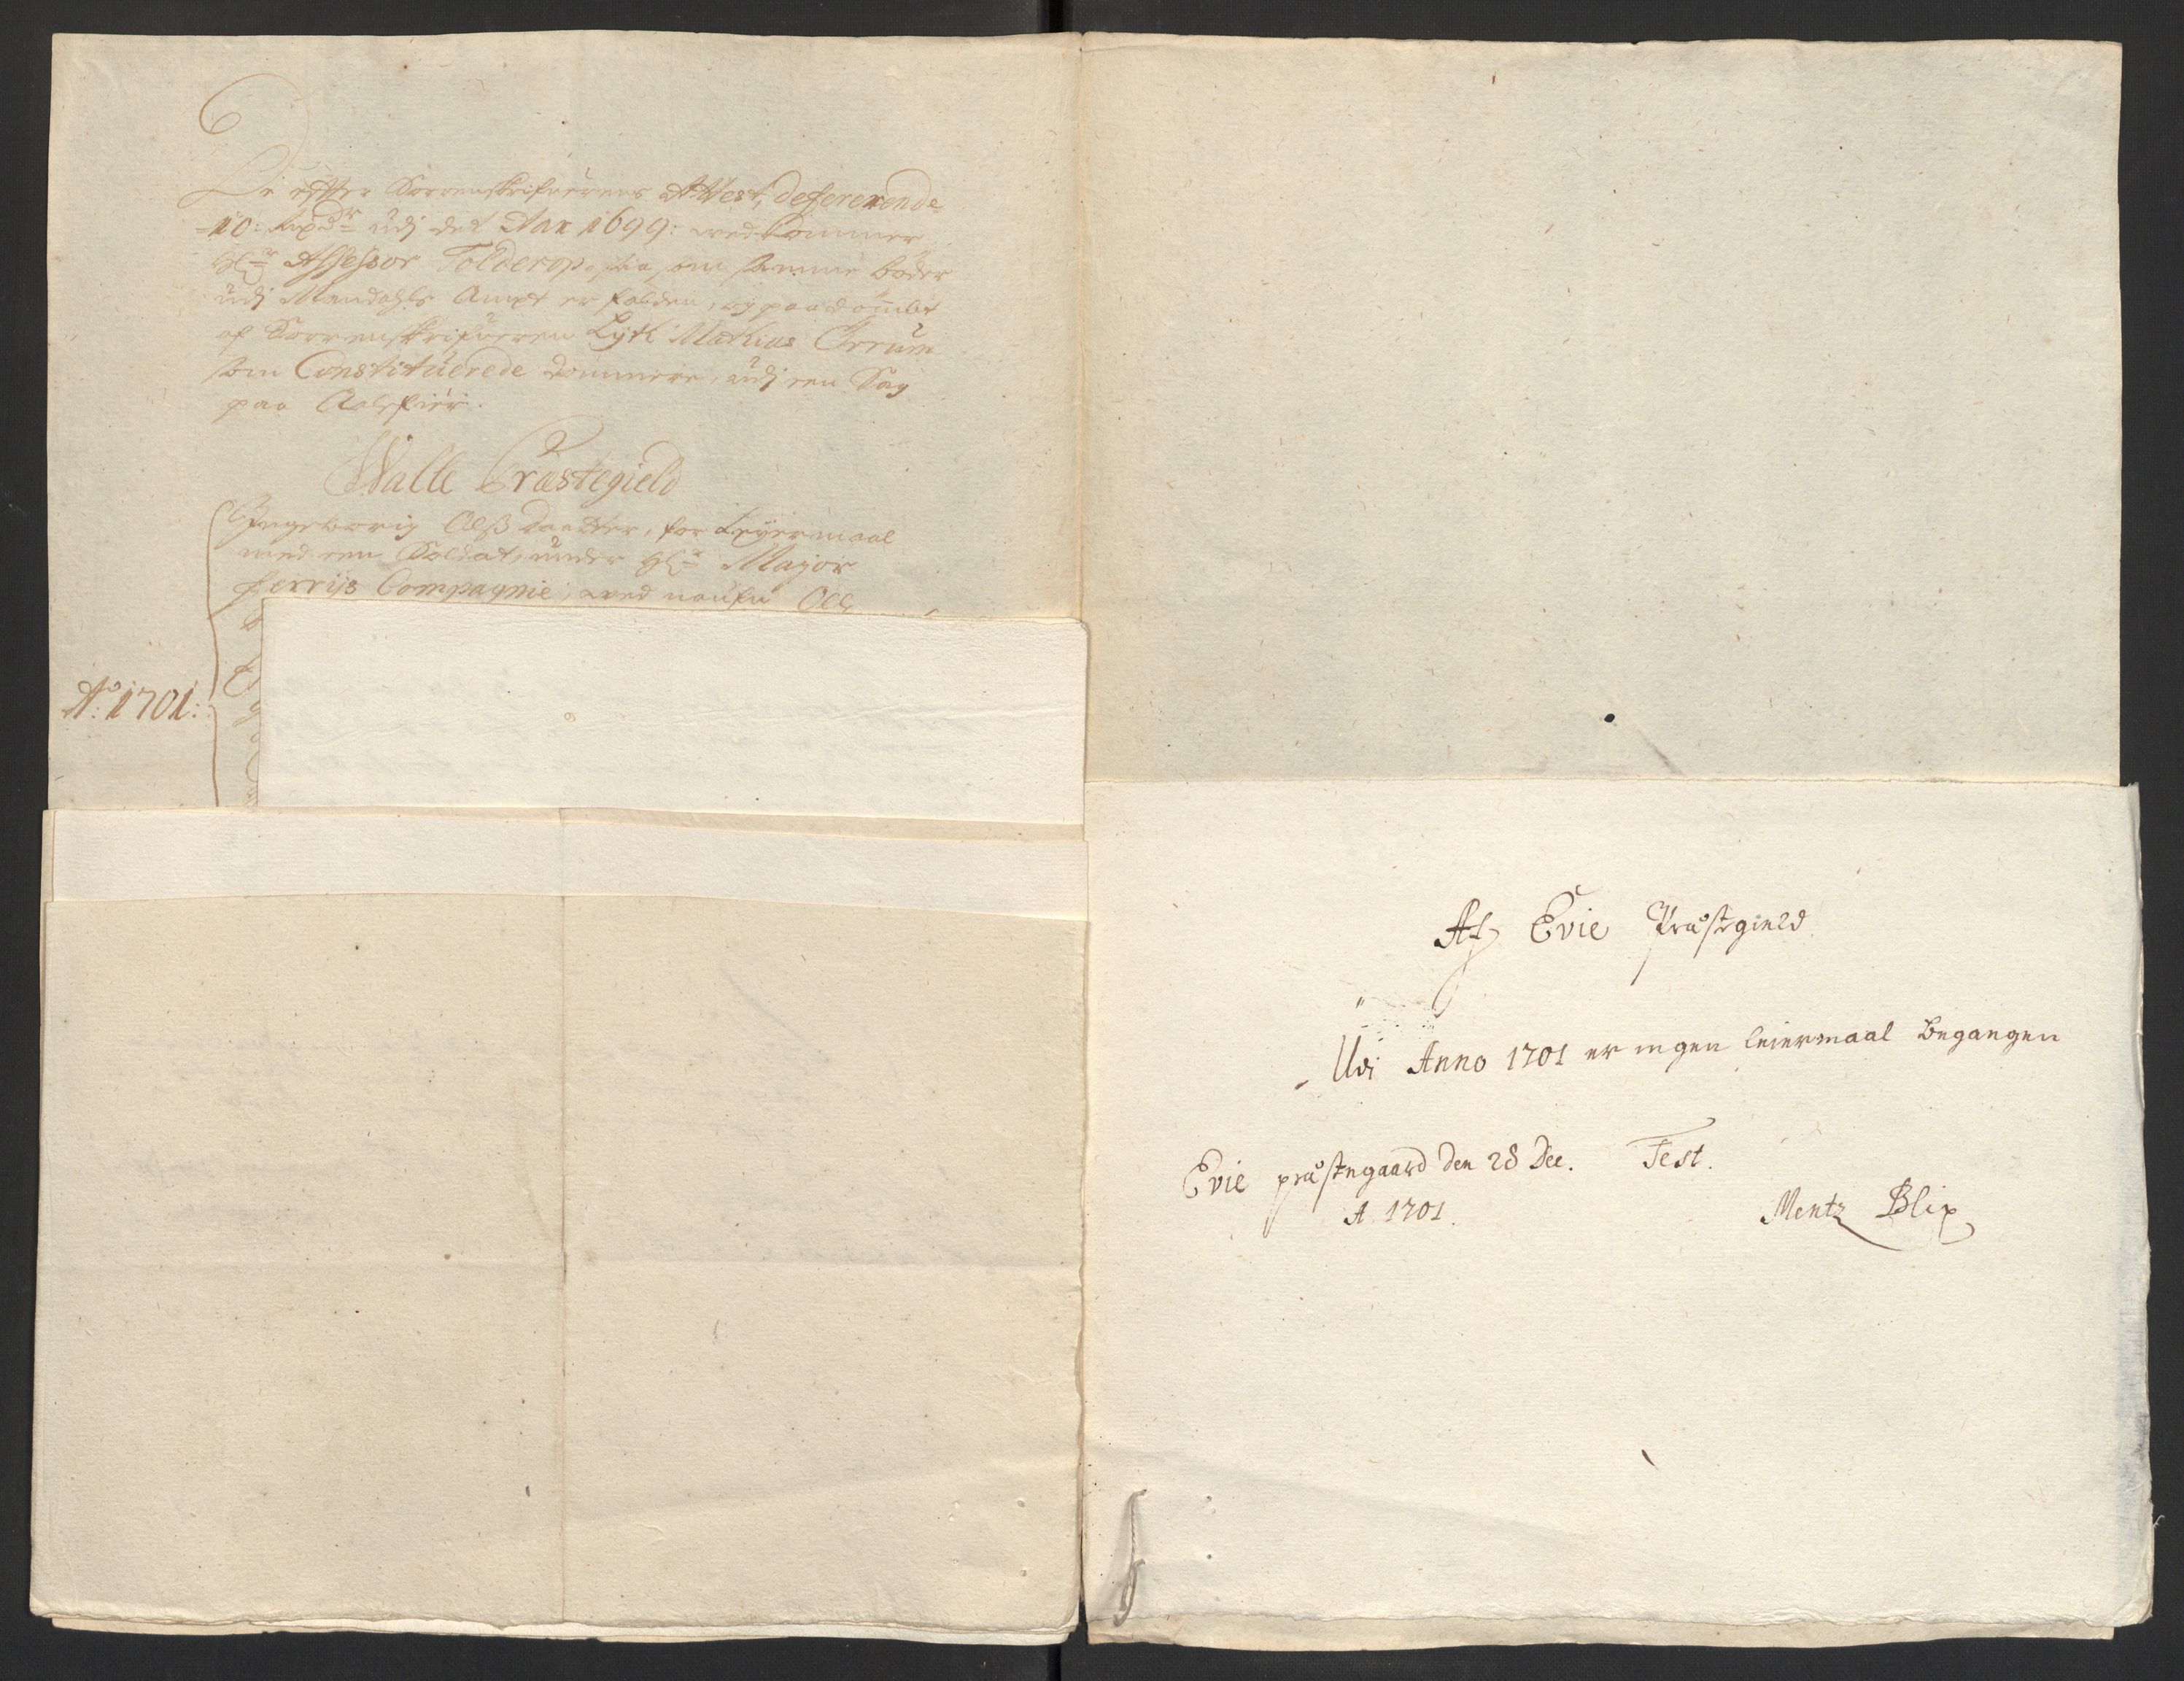 De effter Sorrenskrifuerens Attest, defererende
10: Rixdr udj det Aar 1699: vedkommer
Hr Assessor Tolderop, saa som samme bøder
udj Mandahls Ampt er falden, og paadømbt
af Sorrenskrifueren Lyk Mathias
som Constituerede dommere, udj een Sag
paa
Walle Præstegield
Ingeborrig Olss daatter, for Leyermaal
med een Soldat, under Hr Major
Ferrys Compagnie, ved naufn Ole
Ao: 1701:
Af Evie Præstegield
Udi Anno 1701 er ingen leiermaal begangen
Evie præstegaard den 28 Dec. Test.
A 1701.
Mentz Blix